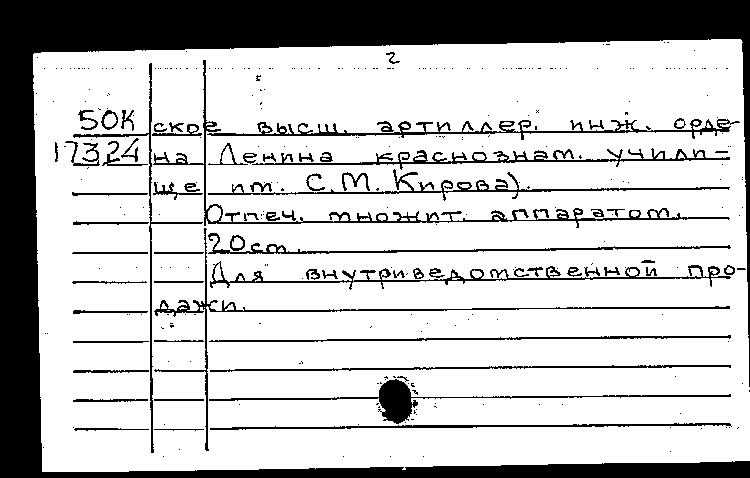 2
50К ское высш. артиллер. инж. орде-
17324 на Ленина краснознам. учили-
ще им. С.М. Кирова).
Отпеч. множит. аппаратом.
20см.
Для внутриведомственной про-
дажи.